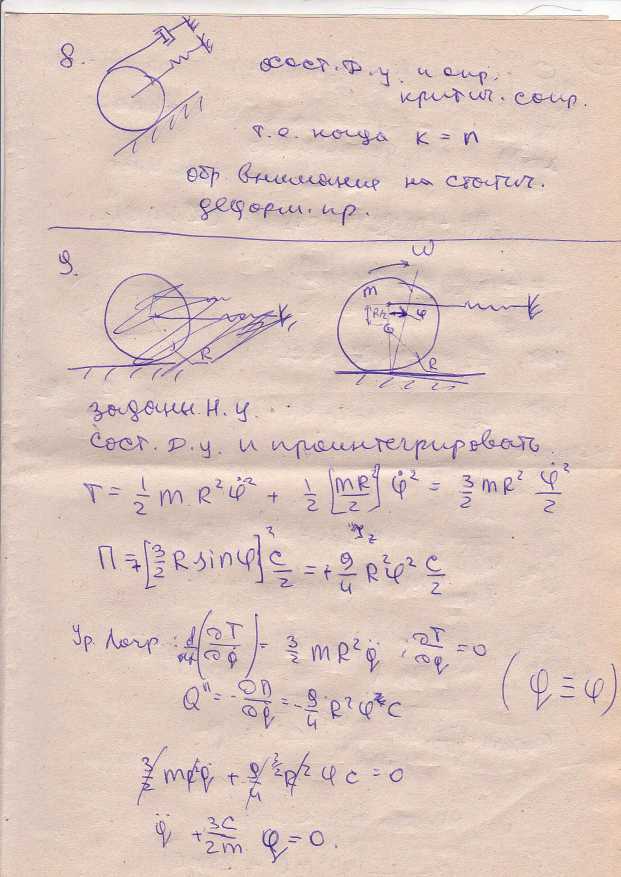 8.
сост. Д.у. и опр.
критич. сопр.
т.е. когда k = n
обр внимание на статич.
деформ. пр.
9.
ω
m
R/2
φ
φ
R
R
заданы Н.у.
Сост. Д.у. и проинтегрировать.
T = 1/2 m R²φ̇² + 1/2 [mR²/2] φ̇² = 3/2 mR² φ̇²/2
П = +[3/2 R sinφ]² c/2 = + 9/4 R²φ² c/2
Ур. Лагр.: d/dt(∂T/∂q̇) = 3/2 mR² q̈ ; ∂T/∂q = 0
Qᴨ = -∂П/∂q = -9/4 R² φ c
(q ≡ φ)
3/2 mR²q̈ + 9/4 R² φ c = 0
q̈ + 3c/2m q = 0.